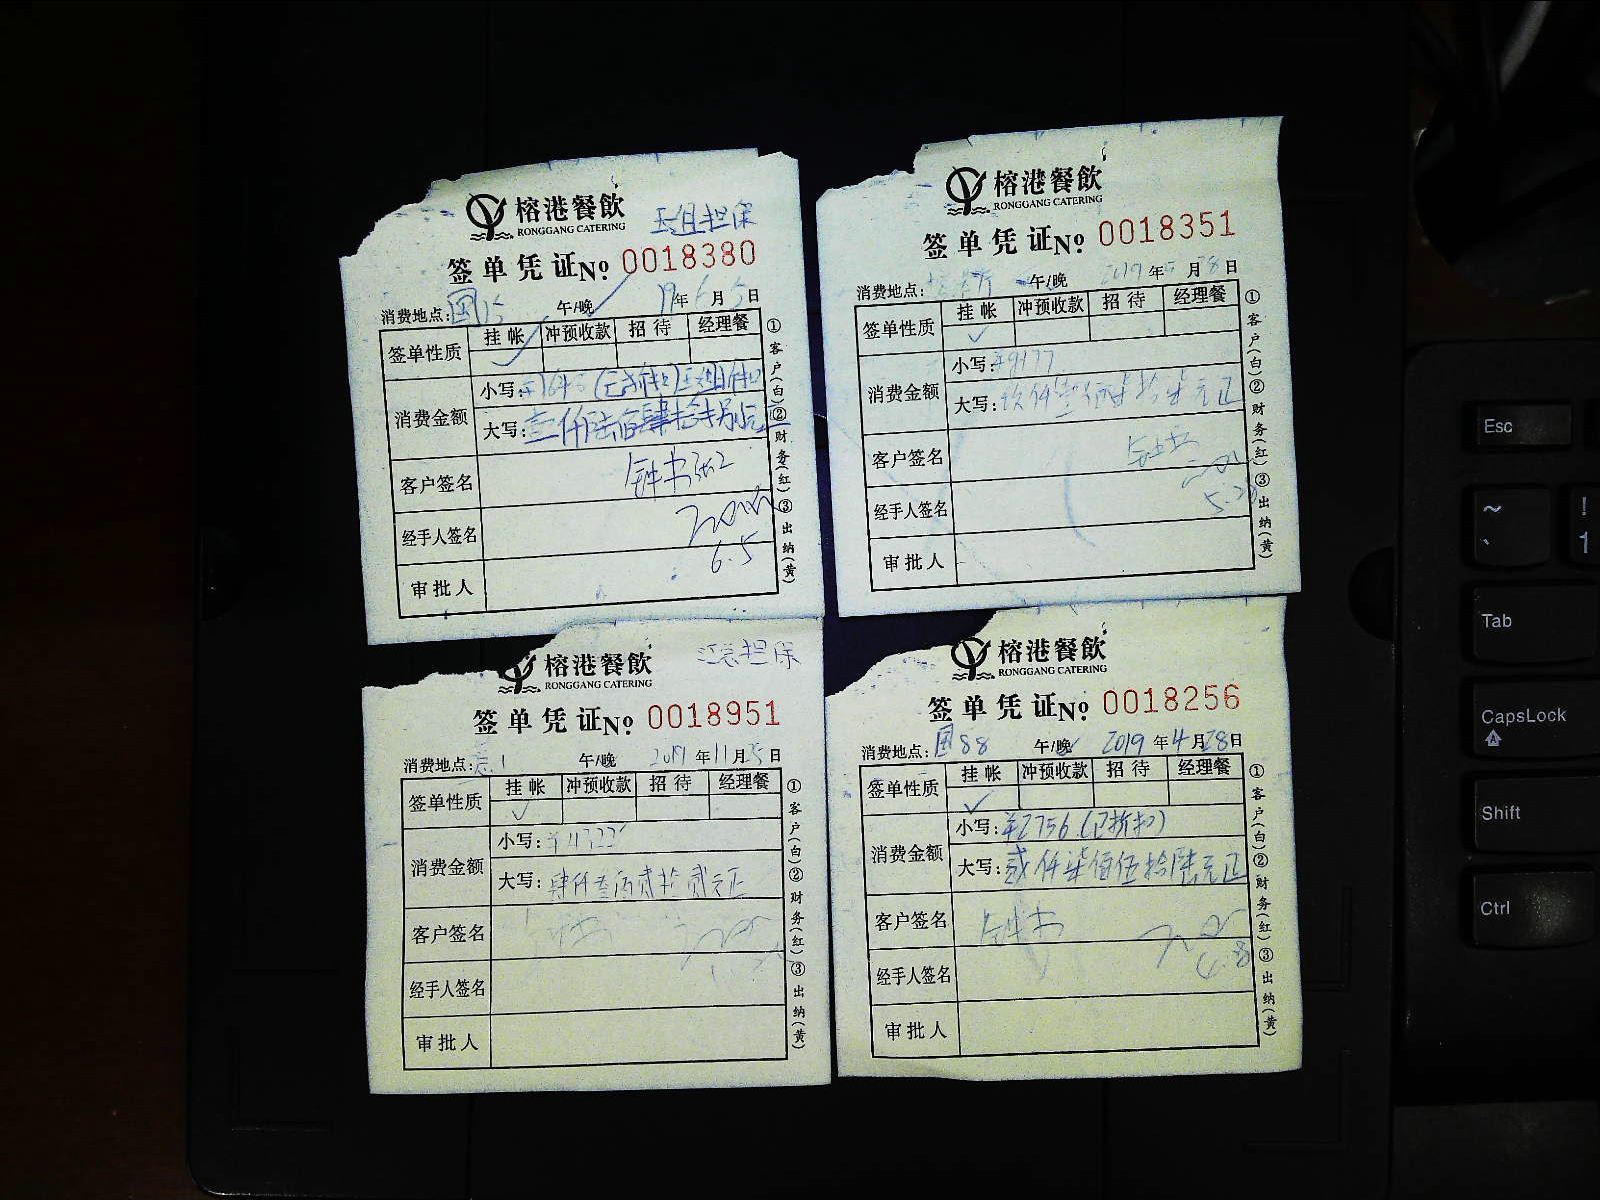 榕港餐飲
RONGGANG CATERING
担保
签单凭证 No 0018380
消费地点: 国15 午/晚 19年6月5日
签单性质 挂帐 冲预收款 招待 经理餐
消费金额 小写:
大写:
客户签名
经手人签名
6.5
审批人
①客户(白)②财务(红)③出纳(黄)
榕港餐飲
RONGGANG CATERING
签单凭证 No 0018351
消费地点: 午/晚 2019年5月28日
签单性质 挂帐 冲预收款 招待 经理餐
消费金额 小写: ¥9177
大写: 玖仟壹佰柒拾柒元正
客户签名
经手人签名
审批人
①客户(白)②财务(红)③出纳(黄)
榕港餐飲
RONGGANG CATERING
江总担保
签单凭证 No 0018951
消费地点: 午/晚 2019年11月25日
签单性质 挂帐 冲预收款 招待 经理餐
消费金额 小写: ¥4322
大写: 肆仟叁佰贰拾贰元正
客户签名
经手人签名
审批人
①客户(白)②财务(红)③出纳(黄)
榕港餐飲
RONGGANG CATERING
签单凭证 No 0018256
消费地点: 国88 午/晚 2019年4月28日
签单性质 挂帐 冲预收款 招待 经理餐
消费金额 小写: ¥2756(已折扣)
大写: 贰仟柒佰伍拾陆元正
客户签名
经手人签名
审批人
①客户(白)②财务(红)③出纳(黄)
Esc
~
`
!
1
Tab
CapsLock
A
Shift
Ctrl